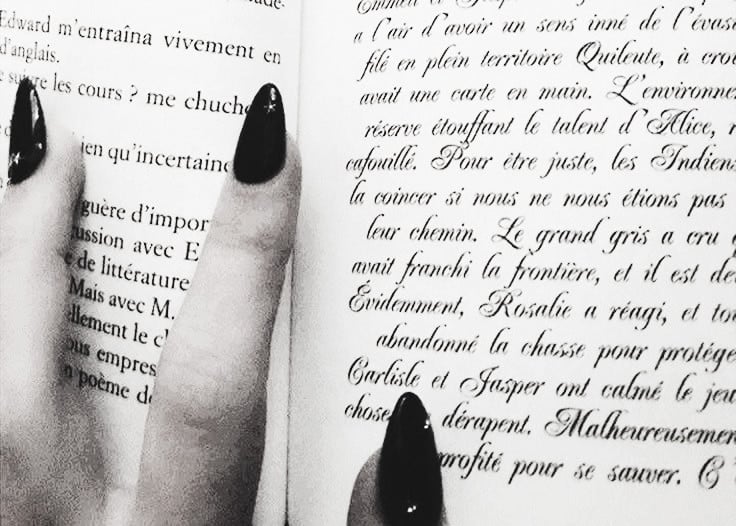 Edward m'entraîna vivement en
d'anglais.
les cours ? me
ien qu'incertaine
guère d'impor
ussion avec E
de littérature
Mais avec M.
llement le
ous empres
poème de
Emmett et
a l'air d'avoir un sens inné de l'évas
filé en plein territoire Quileute, à cro
avait une carte en main. L'environne
réserve étouffant le talent d'Alice,
cafouillé. Pour être juste, les Indiens
la coincer si nous ne nous étions pas
leur chemin. Le grand gris a cru
avait franchi la frontière, et il est de
Évidemment, Rosalie a réagi, et tou
abandonné la chasse pour protége
Carlisle et Jasper ont calmé le jeu
chose dérapent. Malheureusemen
profité pour se sauver.